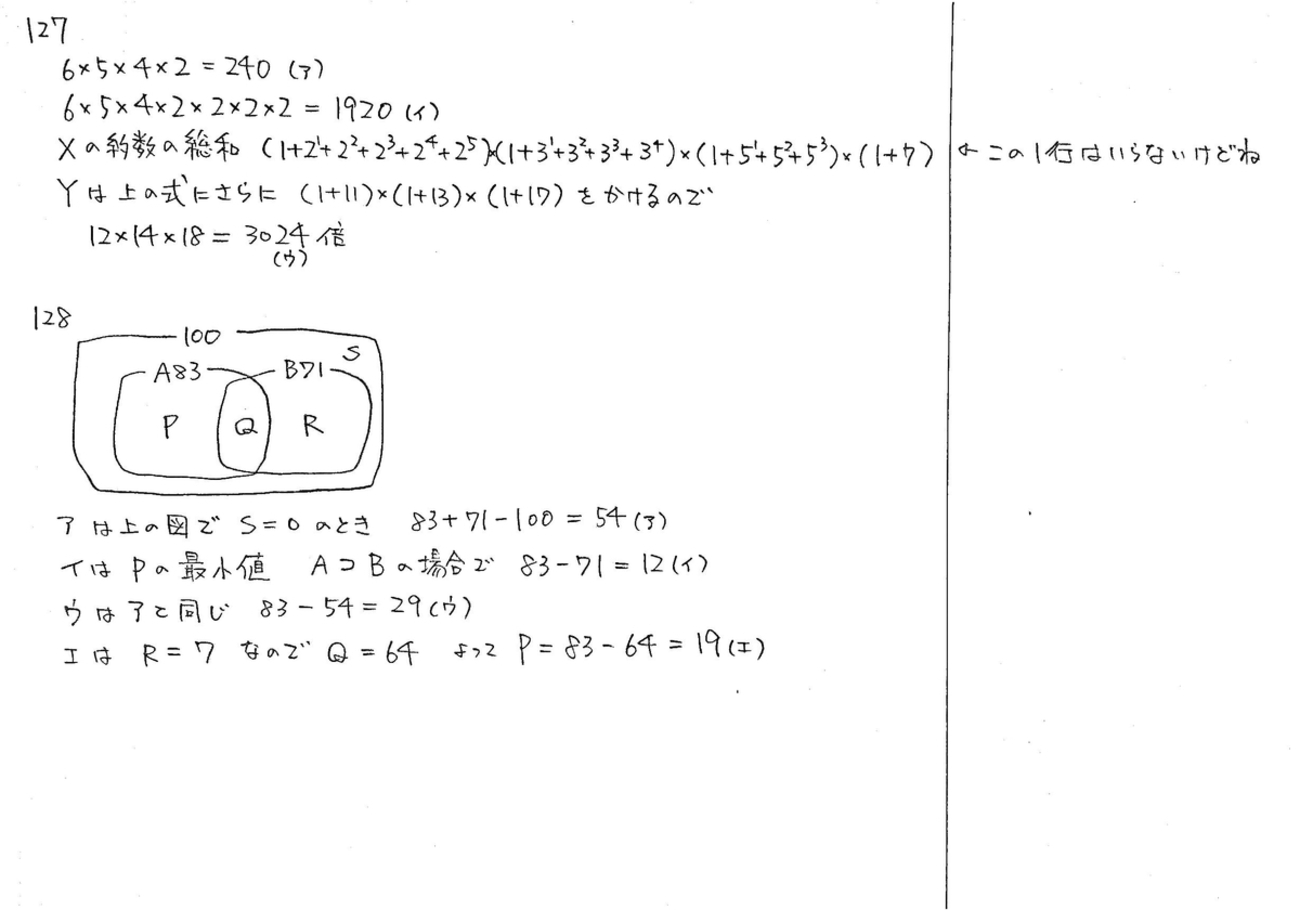 127
6×5×4×2 = 240 (ア)
6×5×4×2×2×2×2 = 1920 (イ)
Xの約数の総和 (1+2¹+2²+2³+2⁴+2⁵)×(1+3¹+3²+3³+3⁴)×(1+5¹+5²+5³)×(1+7) ←この1行はいらないけどね
Yは上の式にさらに (1+11)×(1+13)×(1+17) をかけるので
12×14×18 = 3024倍
(ウ)
128
100
S
A83 B71
P Q R
アは上の図で S=0 のとき 83+71-100 = 54 (ア)
イは Pの最小値 A⊃Bの場合で 83-71 = 12 (イ)
ウはアと同じ 83-54 = 29 (ウ)
エは R=7 なので Q=64 よって P=83-64 = 19 (エ)